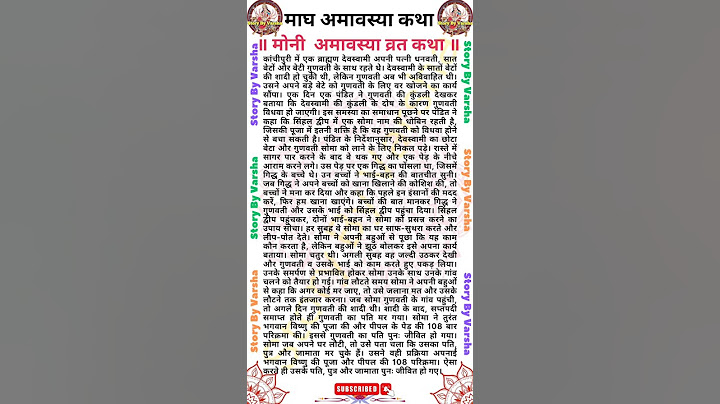 माघ अमावस्या कथा
॥ मोनी अमावस्या व्रत कथा ॥
कांचीपुरी में एक ब्राह्मण देवस्वामी अपनी पत्नी धनवती, सात
बेटों और बेटी गुणवती के साथ रहते थे। देवस्वामी के सातों बेटों
की शादी हो चुकी थी, लेकिन गुणवती अब भी अविवाहित थी।
उसने अपने बड़े बेटे को गुणवती के लिए वर खोजने का कार्य
सौंपा। एक दिन एक पंडित ने गुणवती की कुंडली देखकर
बताया कि देवस्वामी की कुंडली के दोष के कारण गुणवती
विधवा हो जाएगी। इस समस्या का समाधान पूछने पर पंडित ने
कहा कि सिंहल द्वीप में एक सोमा नाम की धोबिन रहती है,
जिसकी पूजा में इतनी शक्ति है कि वह गुणवती को विधवा होने
से बचा सकती है। पंडित के निर्देशानुसार, देवस्वामी का छोटा
बेटा और गुणवती सोमा को लाने के लिए निकल पड़े। रास्ते में
सागर पार करने के बाद वे थक गए और एक पेड़ के नीचे
आराम करने लगे। उस पेड़ पर एक गिद्ध का घोंसला था, जिसमें
गिद्ध के बच्चे थे। उन बच्चों ने भाई-बहन की बातचीत सुनी।
जब गिद्ध ने अपने बच्चों को खाना खिलाने की कोशिश की, तो
बच्चों ने मना कर दिया और कहा कि पहले इन इंसानों की मदद
करें, फिर हम खाना खाएंगे। बच्चों की बात मानकर गिद्ध ने
गुणवती और उसके भाई को सिंहल द्वीप पहुंचा दिया। सिंहल
द्वीप पहुंचकर, दोनों भाई-बहन ने सोमा को प्रसन्न करने का
उपाय सोचा। हर सुबह वे सोमा का घर साफ-सुथरा करते और
लीप-पोत देते। सोमा ने अपनी बहुओं से पूछा कि यह काम
कौन करता है, लेकिन बहुओं ने झूठ बोलकर इसे अपना कार्य
बताया। सोमा चतुर थी। अगली सुबह वह जल्दी उठकर देखी
और गुणवती व उसके भाई को काम करते हुए पकड़ लिया।
उनके समर्पण से प्रभावित होकर सोमा उनके साथ उनके गांव
चलने को तैयार हो गई। गांव लौटते समय सोमा ने अपनी बहुओं
से कहा कि अगर कोई मर जाए, तो उसे जलाना मत और उसके
लौटने तक इंतजार करना। जब सोमा गुणवती के गांव पहुंची,
तो अगले दिन गुणवती की शादी थी। शादी के बाद, सप्तपदी
समाप्त होते ही गुणवती का पति मर गया। सोमा ने तुरंत
भगवान विष्णु की पूजा की और पीपल के पेड़ की 108 बार
परिक्रमा की। इससे गुणवती का पति पुनः जीवित हो गया।
सोमा जब अपने घर लौटी, तो उसे पता चला कि उसका पति,
पुत्र और जामाता मर चुके हैं। उसने वही प्रक्रिया अपनाई
भगवान विष्णु की पूजा और पीपल की 108 परिक्रमा। ऐसा
करते ही उसके पति, पुत्र और जामाता पुनः जीवित हो गए।
Story By Varsha
Story By Varsha
Story By Varsha
Story By Varsha
Story By Varsha
Story By Varsha
Story By Varsha
Story By Varsha
SUBSCRIBED